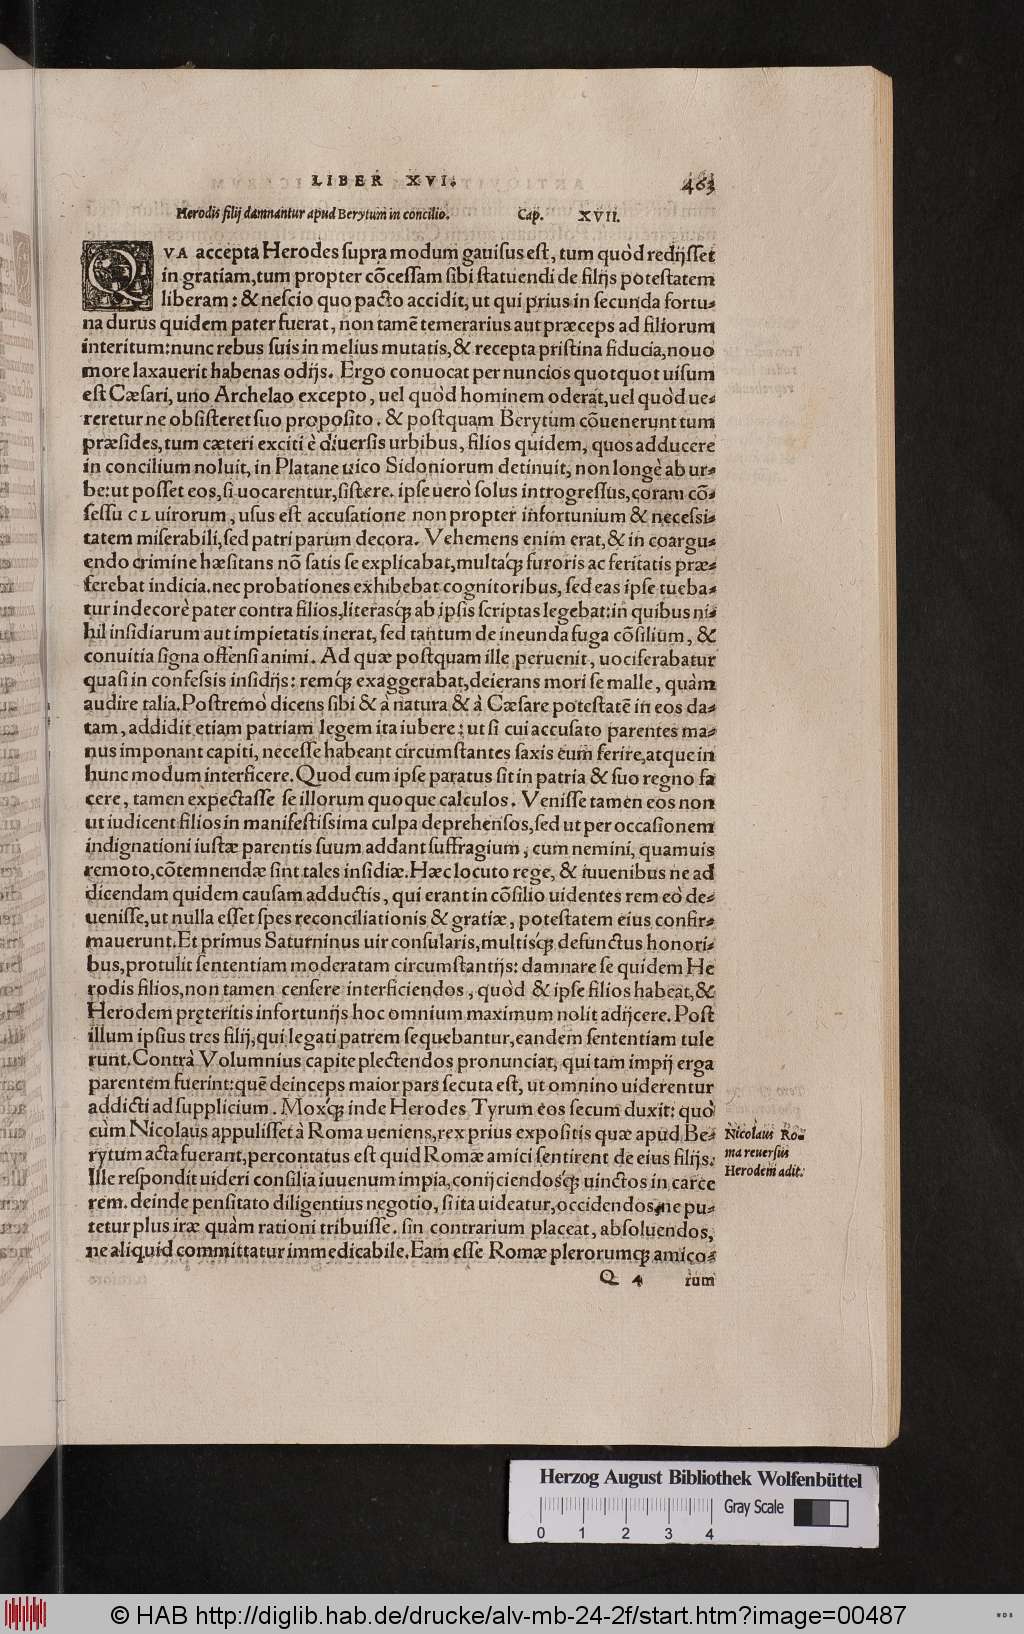 LIBER XVI. 463
Herodis filij damnantur apud Berytum in concilio. Cap. XVII.
QVA accepta Herodes supra modum gauisus est, tum quòd redijsset
in gratiam, tum propter cõcessam sibi statuendi de filijs potestatem
liberam: & nescio quo pacto accidit, ut qui prius in secunda fortu-
na durus quidem pater fuerat, non tamẽ temerarius aut præceps ad filiorum
interitum: nunc rebus suis in melius mutatis, & recepta pristina fiducia, nouo
more laxauerit habenas odijs. Ergo conuocat per nuncios quotquot uisum
est Cæsari, uno Archelao excepto, uel quòd hominem oderat, uel quòd ue-
reretur ne obsisteret suo proposito. & postquam Berytum cõuenerunt tum
præsides, tum cæteri exciti è diuersis urbibus, filios quidem, quos adducere
in concilium noluit, in Platane uico Sidoniorum detinuit, non longè ab ur-
be: ut posset eos, si uocarentur, sistere. ipse uerò solus introgressus, coram cõ-
sessu CL uirorum, usus est accusatione non propter infortunium & necessi-
tatem miserabili, sed patri parum decora. Vehemens enim erat, & in coargu-
endo crimine hæsitans nõ satis se explicabat, multaq́; furoris ac feritatis præ-
ferebat indicia. nec probationes exhibebat cognitoribus, sed eas ipse tueba-
tur indecorè pater contra filios, literasq́; ab ipsis scriptas legebat: in quibus ni-
hil insidiarum aut impietatis inerat, sed tantum de ineunda fuga cõsilium, &
conuitia signa offensi animi. Ad quæ postquam ille peruenit, uociferabatur
quasi in confessis insidijs: remq́; exaggerabat, deierans mori se malle, quàm
audire talia. Postremò dicens sibi & à natura & à Cæsare potestatẽ in eos da-
tam, addidit etiam patriam legem ita iubere: ut si cui accusato parentes ma-
nus imponant capiti, necesse habeant circumstantes saxis eum ferire, atque in
hunc modum interficere. Quod cum ipse paratus sit in patria & suo regno fa
cere, tamen expectasse se illorum quoque calculos. Venisse tamen eos non
ut iudicent filios in manifestissima culpa deprehensos, sed ut per occasionem
indignationi iustæ parentis suum addant suffragium, cum nemini, quamuis
remoto, cõtemnendæ sint tales insidiæ. Hæc locuto rege, & iuuenibus ne ad
dicendam quidem causam adductis, qui erant in cõsilio uidentes rem eò de-
uenisse, ut nulla esset spes reconciliationis & gratiæ, potestatem eius confir-
mauerunt. Et primus Saturninus uir consularis, multisq́; defunctus honori-
bus, protulit sententiam moderatam circumstantijs: damnare se quidem He
rodis filios, non tamen censere interficiendos, quòd & ipse filios habeat, &
Herodem pręteritis infortunijs hoc omnium maximum nolit adijcere. Post
illum ipsius tres filij, qui legati patrem sequebantur, eandem sententiam tule
runt. Contrà Volumnius capite plectendos pronunciat, qui tam impij erga
parentem fuerint: quẽ deinceps maior pars secuta est, ut omnino uiderentur
addicti ad supplicium. Moxq́; inde Herodes Tyrum eos secum duxit: quò
cùm Nicolaus appulisset à Roma ueniens, rex prius expositis quæ apud Be-
rytum acta fuerant, percontatus est quid Romæ amici sentirent de eius filijs.
Ille respondit uideri consilia iuuenum impia, conijciendosq́; uinctos in carce
rem. deinde pensitato diligentius negotio, si ita uideatur, occidendos, ne pu-
tetur plus iræ quàm rationi tribuisse. sin contrarium placeat, absoluendos,
ne aliquid committatur immedicabile. Eam esse Romæ plerorumq́; amico-
Q 4 rum
Nicolaus Ro-
ma reuersus
Herodem adit.
Herzog August Bibliothek Wolfenbüttel
Gray Scale
0 1 2 3 4
© HAB http://diglib.hab.de/drucke/alv-mb-24-2f/start.htm?image=00487